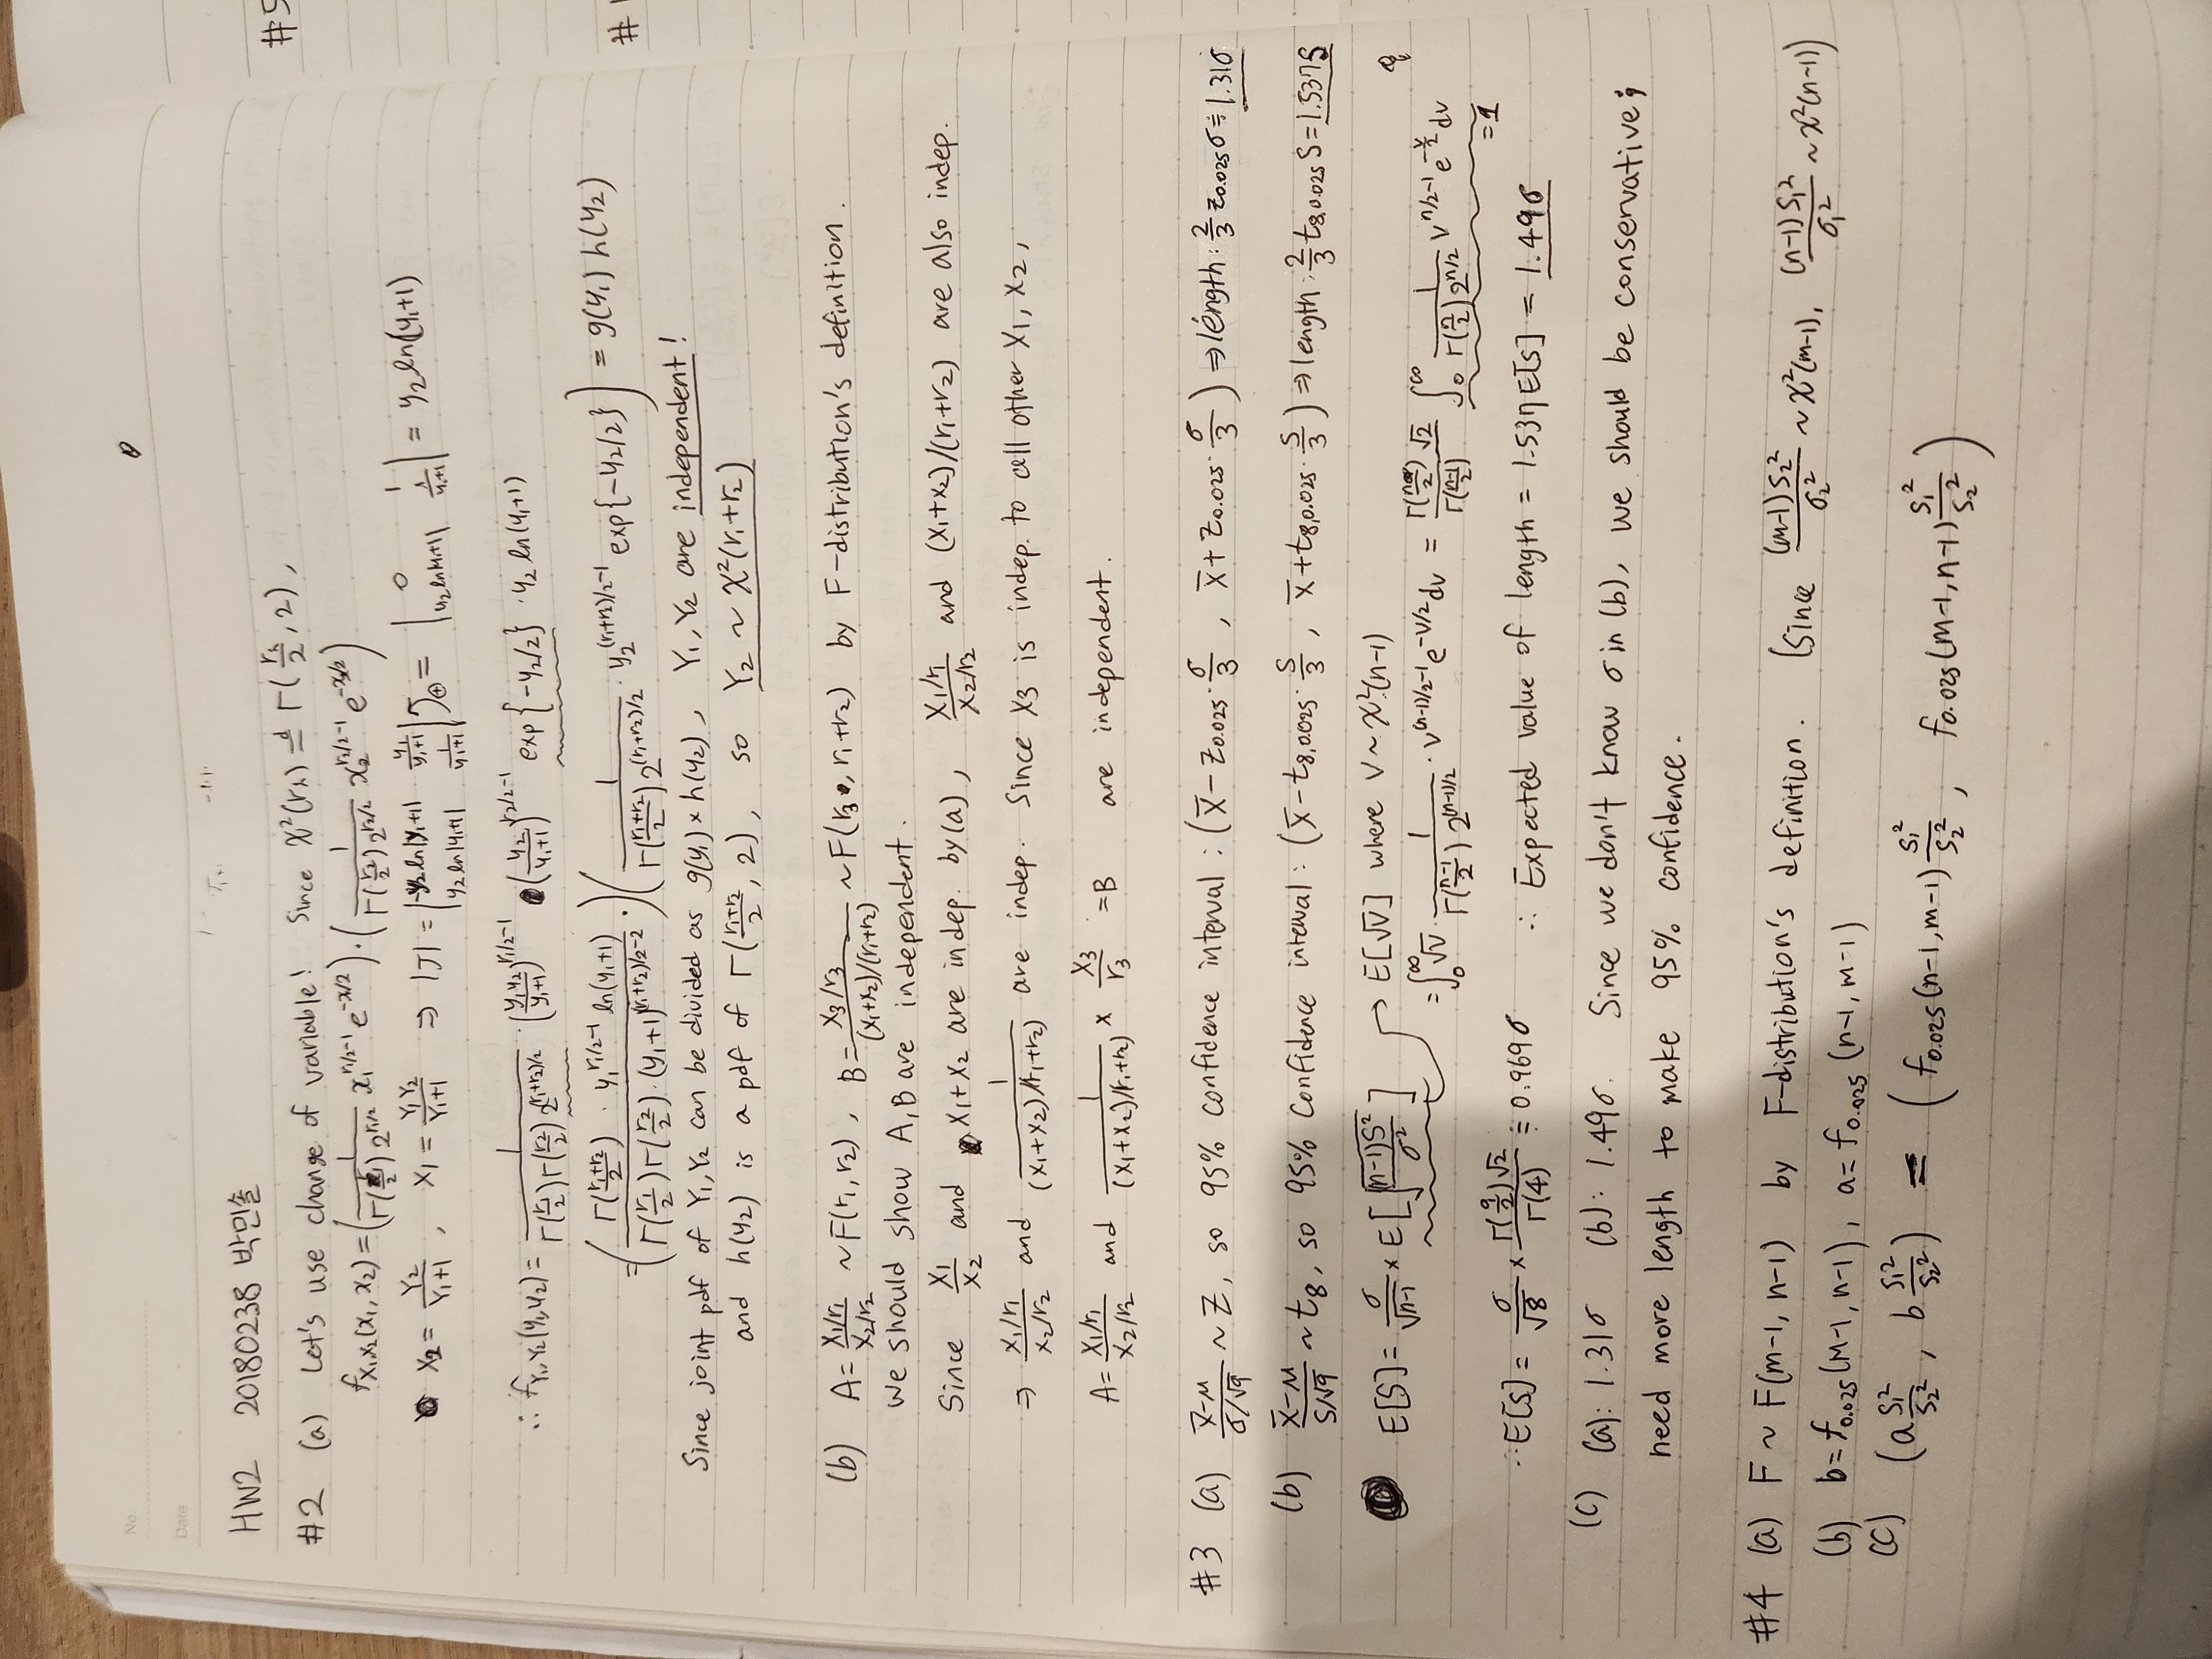 No.
Date
HW2 20180238 박민솔
#2 (a) Let's use change of variable! Since χ²(rₖ) =ᵈ Γ(rₖ/2, 2),
f_{X₁X₂}(x₁, x₂) = (1/(Γ(r₁/2) 2^{r₁/2}) x₁^{r₁/2-1} e^{-x₁/2}) · (1/(Γ(r₂/2) 2^{r₂/2}) x₂^{r₂/2-1} e^{-x₂/2})
X₂ = Y₂/(Y₁+1), X₁ = Y₁Y₂/(Y₁+1) ⇒ |J| = | y₂ln|y₁+1| y₁/(y₁+1) ; y₂ln|y₁+1| 1/(y₁+1) | = | 0 1 ; y₂ln|y₁+1| 1/(y₁+1) | = y₂ln(y₁+1)
∴ f_{Y₁,Y₂}(y₁,y₂) = 1/(Γ(r₁/2)Γ(r₂/2) 2^{(r₁+r₂)/2}) · (y₁y₂/(y₁+1))^{r₁/2-1} (y₂/(y₁+1))^{r₂/2-1} exp{-y₂/2} · y₂ ln(y₁+1)
= (Γ((r₁+r₂)/2) · y₁^{r₁/2-1} ln(y₁+1) / (Γ(r₁/2)Γ(r₂/2) · (y₁+1)^{(r₁+r₂)/2-2}) · ) (1/(Γ((r₁+r₂)/2) 2^{(r₁+r₂)/2}) · y₂^{(r₁+r₂)/2-1} exp{-y₂/2}) = g(y₁) h(y₂)
Since joint pdf of Y₁, Y₂ can be divided as g(y₁) × h(y₂), Y₁, Y₂ are independent!
and h(y₂) is a pdf of Γ((r₁+r₂)/2, 2), so Y₂ ~ χ²(r₁+r₂)
(b) A = (X₁/r₁)/(X₂/r₂) ~ F(r₁, r₂), B = (X₃/r₃)/((X₁+X₂)/(r₁+r₂)) ~ F(r₃, r₁+r₂) by F-distribution's definition.
We should show A, B are independent.
Since X₁/X₂ and X₁+X₂ are indep. by (a), (X₁/r₁)/(X₂/r₂) and (X₁+X₂)/(r₁+r₂) are also indep.
⇒ (X₁/r₁)/(X₂/r₂) and 1/((X₁+X₂)/(r₁+r₂)) are indep. Since X₃ is indep. to all other X₁, X₂,
A = (X₁/r₁)/(X₂/r₂) and 1/((X₁+X₂)/(r₁+r₂)) × X₃/r₃ = B are independent.
#3 (a) (X̄-μ)/(σ/√9) ~ Z, so 95% confidence interval : (X̄ - Z₀.₀₂₅·σ/3, X̄ + Z₀.₀₂₅·σ/3) ⇒ length : 2/3 Z₀.₀₂₅ σ ≒ 1.31σ
(b) (X̄-μ)/(S/√9) ~ t₈, so 95% confidence interval : (X̄ - t₈,₀.₀₂₅·S/3, X̄ + t₈,₀.₀₂₅·S/3) ⇒ length : 2/3 t₈,₀.₀₂₅ S = 1.537S
E[S] = σ/√(n-1) × E[√((n-1)S²/σ²)] → E[√V] where V ~ χ²(n-1)
= ∫₀^∞ √V · 1/(Γ((n-1)/2) 2^{(n-1)/2}) · V^{(n-1)/2-1} e^{-V/2} dv = Γ(n/2)√2/Γ((n-1)/2) ∫₀^∞ 1/(Γ(n/2) 2^{n/2}) V^{n/2-1} e^{-V/2} dv
=1
∴ E[S] = σ/√8 × Γ(9/2)√2/Γ(4) ≒ 0.969σ ∴ Expected value of length = 1.537E[S] = 1.49σ
(c) (a): 1.31σ (b): 1.49σ. Since we don't know σ in (b), we should be conservative;
need more length to make 95% confidence.
#4 (a) F ~ F(m-1, n-1) by F-distribution's definition. (Since (m-1)S₂²/σ₂² ~ χ²(m-1), (n-1)S₁²/σ₁² ~ χ²(n-1))
(b) b = f₀.₀₂₅(m-1, n-1), a = f₀.₀₂₅(n-1, m-1)
(c) (a S₁²/S₂², b S₁²/S₂²) = (f₀.₀₂₅(n-1, m-1) S₁²/S₂², f₀.₀₂₅(m-1, n-1) S₁²/S₂²)